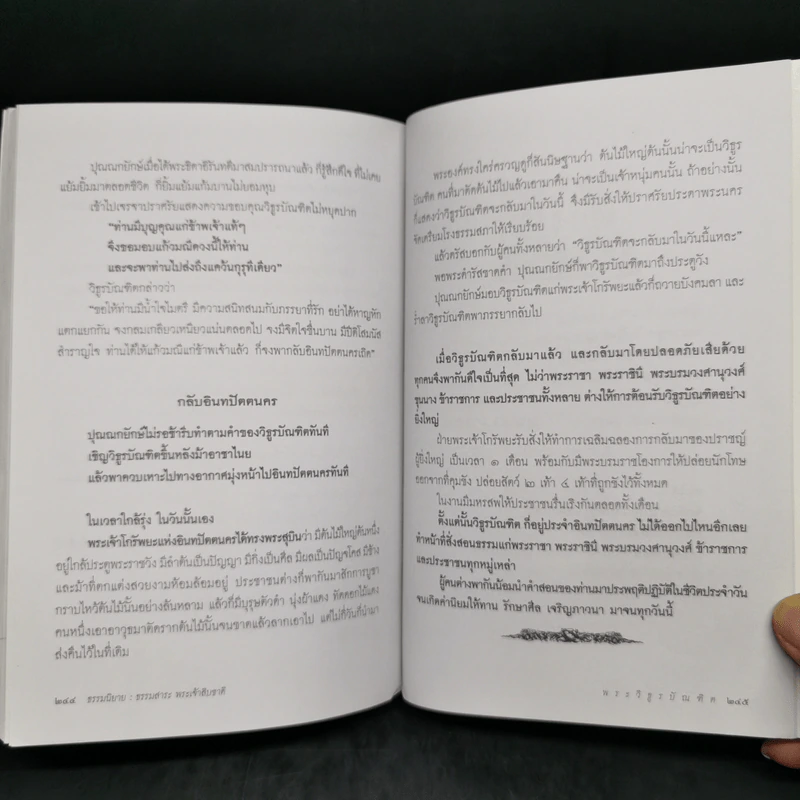 ปุณณกยักษ์เมื่อได้พระธิดาอิรันทตีมาสมปรารถนาแล้ว ก็รู้สึกดีใจ ที่ไม่เคย
แย้มยิ้มมาตลอดชีวิต ก็ยิ้มแย้มแก้มบานไม่ยอมหุบ
เข้าไปเจรจาปราศรัยแสดงความขอบคุณวิธูรบัณฑิตไม่หยุดปาก
“ท่านมีบุญคุณแก่ข้าพเจ้าแท้ๆ
จึงขอมอบแก้วมณีดวงนี้ให้ท่าน
และจะพาท่านไปส่งถึงแคว้นกุรุทีเดียว”
วิธูรบัณฑิตกล่าวว่า
“ขอให้ท่านมีน้ำใจไมตรี มีความสนิทสนมกับภรรยาที่รัก อย่าได้หาญหัก
แตกแยกกัน จงกลมเกลียวเหนียวแน่นตลอดไป จงมีจิตใจชื่นบาน มีปีติโสมนัส
สำราญใจ ท่านได้ให้แก้วมณีแก่ข้าพเจ้าแล้ว ก็จงพากลับอินทปัตตนครเถิด”
กลับอินทปัตตนคร
ปุณณกยักษ์ไม่รอช้ารีบทำตามคำของวิธูรบัณฑิตทันที
เชิญวิธูรบัณฑิตขึ้นหลังม้าอาชาไนย
แล้วพาควบเหาะไปทางอากาศมุ่งหน้าไปอินทปัตตนครทันที
ในเวลาใกล้รุ่ง ในวันนั้นเอง
พระเจ้าโกรัพยะแห่งอินทปัตตนครได้ทรงพระสุบินว่า มีต้นไม้ใหญ่ต้นหนึ่ง
อยู่ใกล้ประตูพระราชวัง มีลำต้นเป็นปัญญา มีกิ่งเป็นศีล มีผลเป็นปัญจโครส มีช้าง
และม้าที่ตกแต่งสวยงามห้อมล้อมอยู่ ประชาชนต่างก็พากันมาสักการบูชา
กราบไหว้ต้นไม้นั้นอย่างล้นหลาม แล้วก็มีบุรุษตัวดำ นุ่งผ้าแดง ทัดดอกไม้แดง
คนหนึ่งเอาอาวุธมาตัดรากต้นไม้นั้นจนขาดแล้วลากเอาไป แต่ไม่กี่วันก็นำมา
ส่งคืนไว้ในที่เดิม
๒๔๔ ธรรมนิยาย : ธรรมสาระ พระเจ้าสิบชาติ
พระองค์ทรงใคร่ครวญดูก็สันนิษฐานว่า ต้นไม้ใหญ่ต้นนั้นน่าจะเป็นวิธูร
บัณฑิต คนที่มาตัดต้นไม้ไปแล้วเอามาคืน น่าจะเป็นเจ้าหนุ่มคนนั้น ถ้าอย่างนั้น
ก็แสดงว่าวิธูรบัณฑิตจะกลับมาในวันนี้ จึงมีรับสั่งให้ปราศรัยประดาพระนคร
จัดเตรียมโรงธรรมสภาให้เรียบร้อย
แล้วตรัสบอกกับผู้คนทั้งหลายว่า “วิธูรบัณฑิตจะกลับมาในวันนี้แหละ”
พอพระดำรัสขาดคำ ปุณณกยักษ์ก็พาวิธูรบัณฑิตมาถึงประตูวัง
ปุณณกยักษ์มอบวิธูรบัณฑิตแก่พระเจ้าโกรัพยะแล้วก็ถวายบังคมลา และ
ร่ำลาวิธูรบัณฑิตพาภรรยากลับไป
เมื่อวิธูรบัณฑิตกลับมาแล้ว และกลับมาโดยปลอดภัยเสียด้วย
ทุกคนจึงพากันดีใจเป็นที่สุด ไม่ว่าพระราชา พระราชินี พระบรมวงศานุวงศ์
ขุนนาง ข้าราชการ และประชาชนทั้งหลาย ต่างให้การต้อนรับวิธูรบัณฑิตอย่าง
ยิ่งใหญ่
ฝ่ายพระเจ้าโกรัพยะรับสั่งให้ทำการเฉลิมฉลองการกลับมาของปราชญ์
ผู้ยิ่งใหญ่ เป็นเวลา ๑ เดือน พร้อมกับมีพระบรมราชโองการให้ปล่อยนักโทษ
ออกจากที่คุมขัง ปล่อยสัตว์ ๒ เท้า ๔ เท้าที่ถูกขังไว้ทั้งหมด
ในงานมีมหรสพให้ประชาชนรื่นเริงกันตลอดทั้งเดือน
ตั้งแต่นั้นวิธูรบัณฑิต ก็อยู่ประจำอินทปัตตนคร ไม่ได้ออกไปไหนอีกเลย
ทำหน้าที่สั่งสอนธรรมแก่พระราชา พระราชินี พระบรมวงศานุวงศ์ ข้าราชการ
และประชาชนทุกหมู่เหล่า
ผู้คนต่างพากันน้อมนำคำสอนของท่านมาประพฤติปฏิบัติในชีวิตประจำวัน
จนเกิดค่านิยมให้ทาน รักษาศีล เจริญภาวนา มาจนทุกวันนี้
พระวิธูรบัณฑิต ๒๔๕